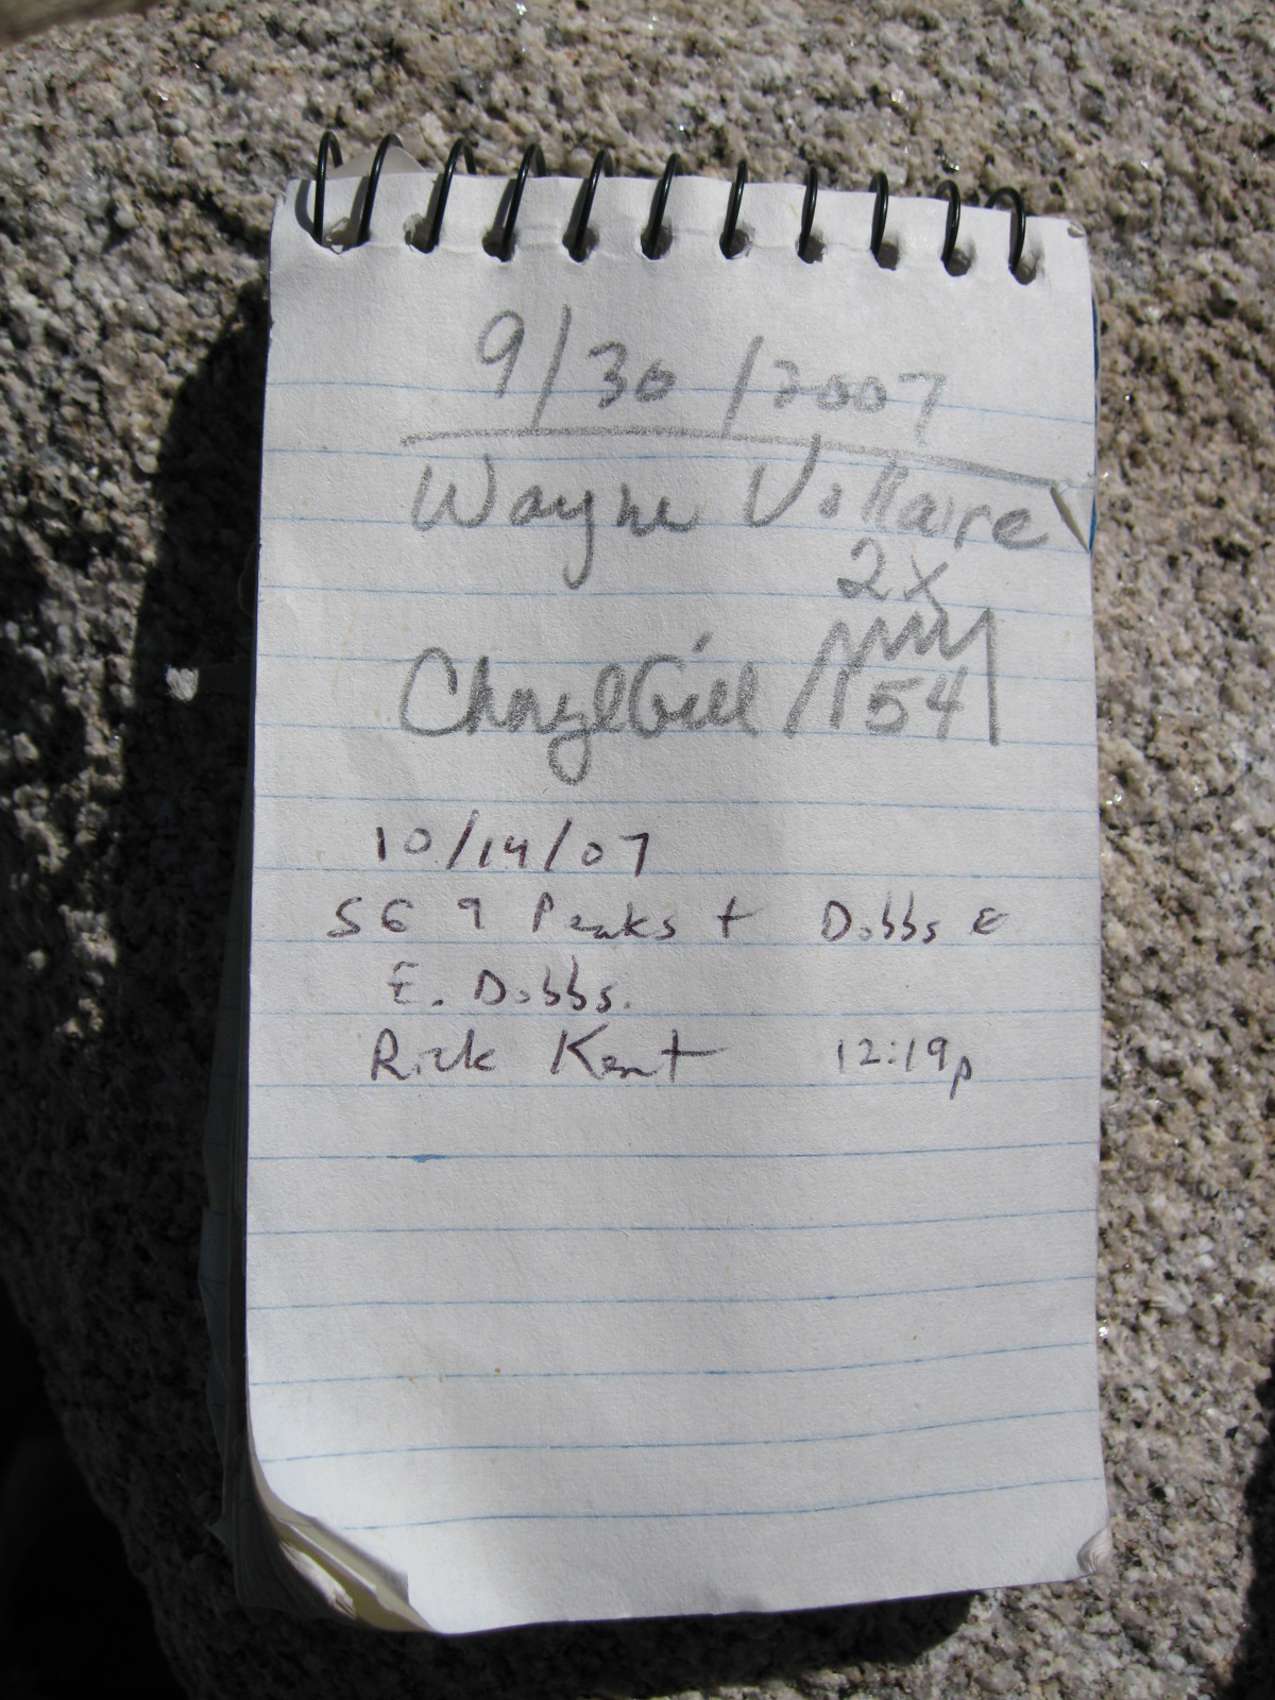 9/30/2007
Wayne Voltaire
2x
Cheryl Gill 54
10/14/07
SG 9 Peaks + Dobbs &
E. Dobbs.
Rick Kent 12:19p